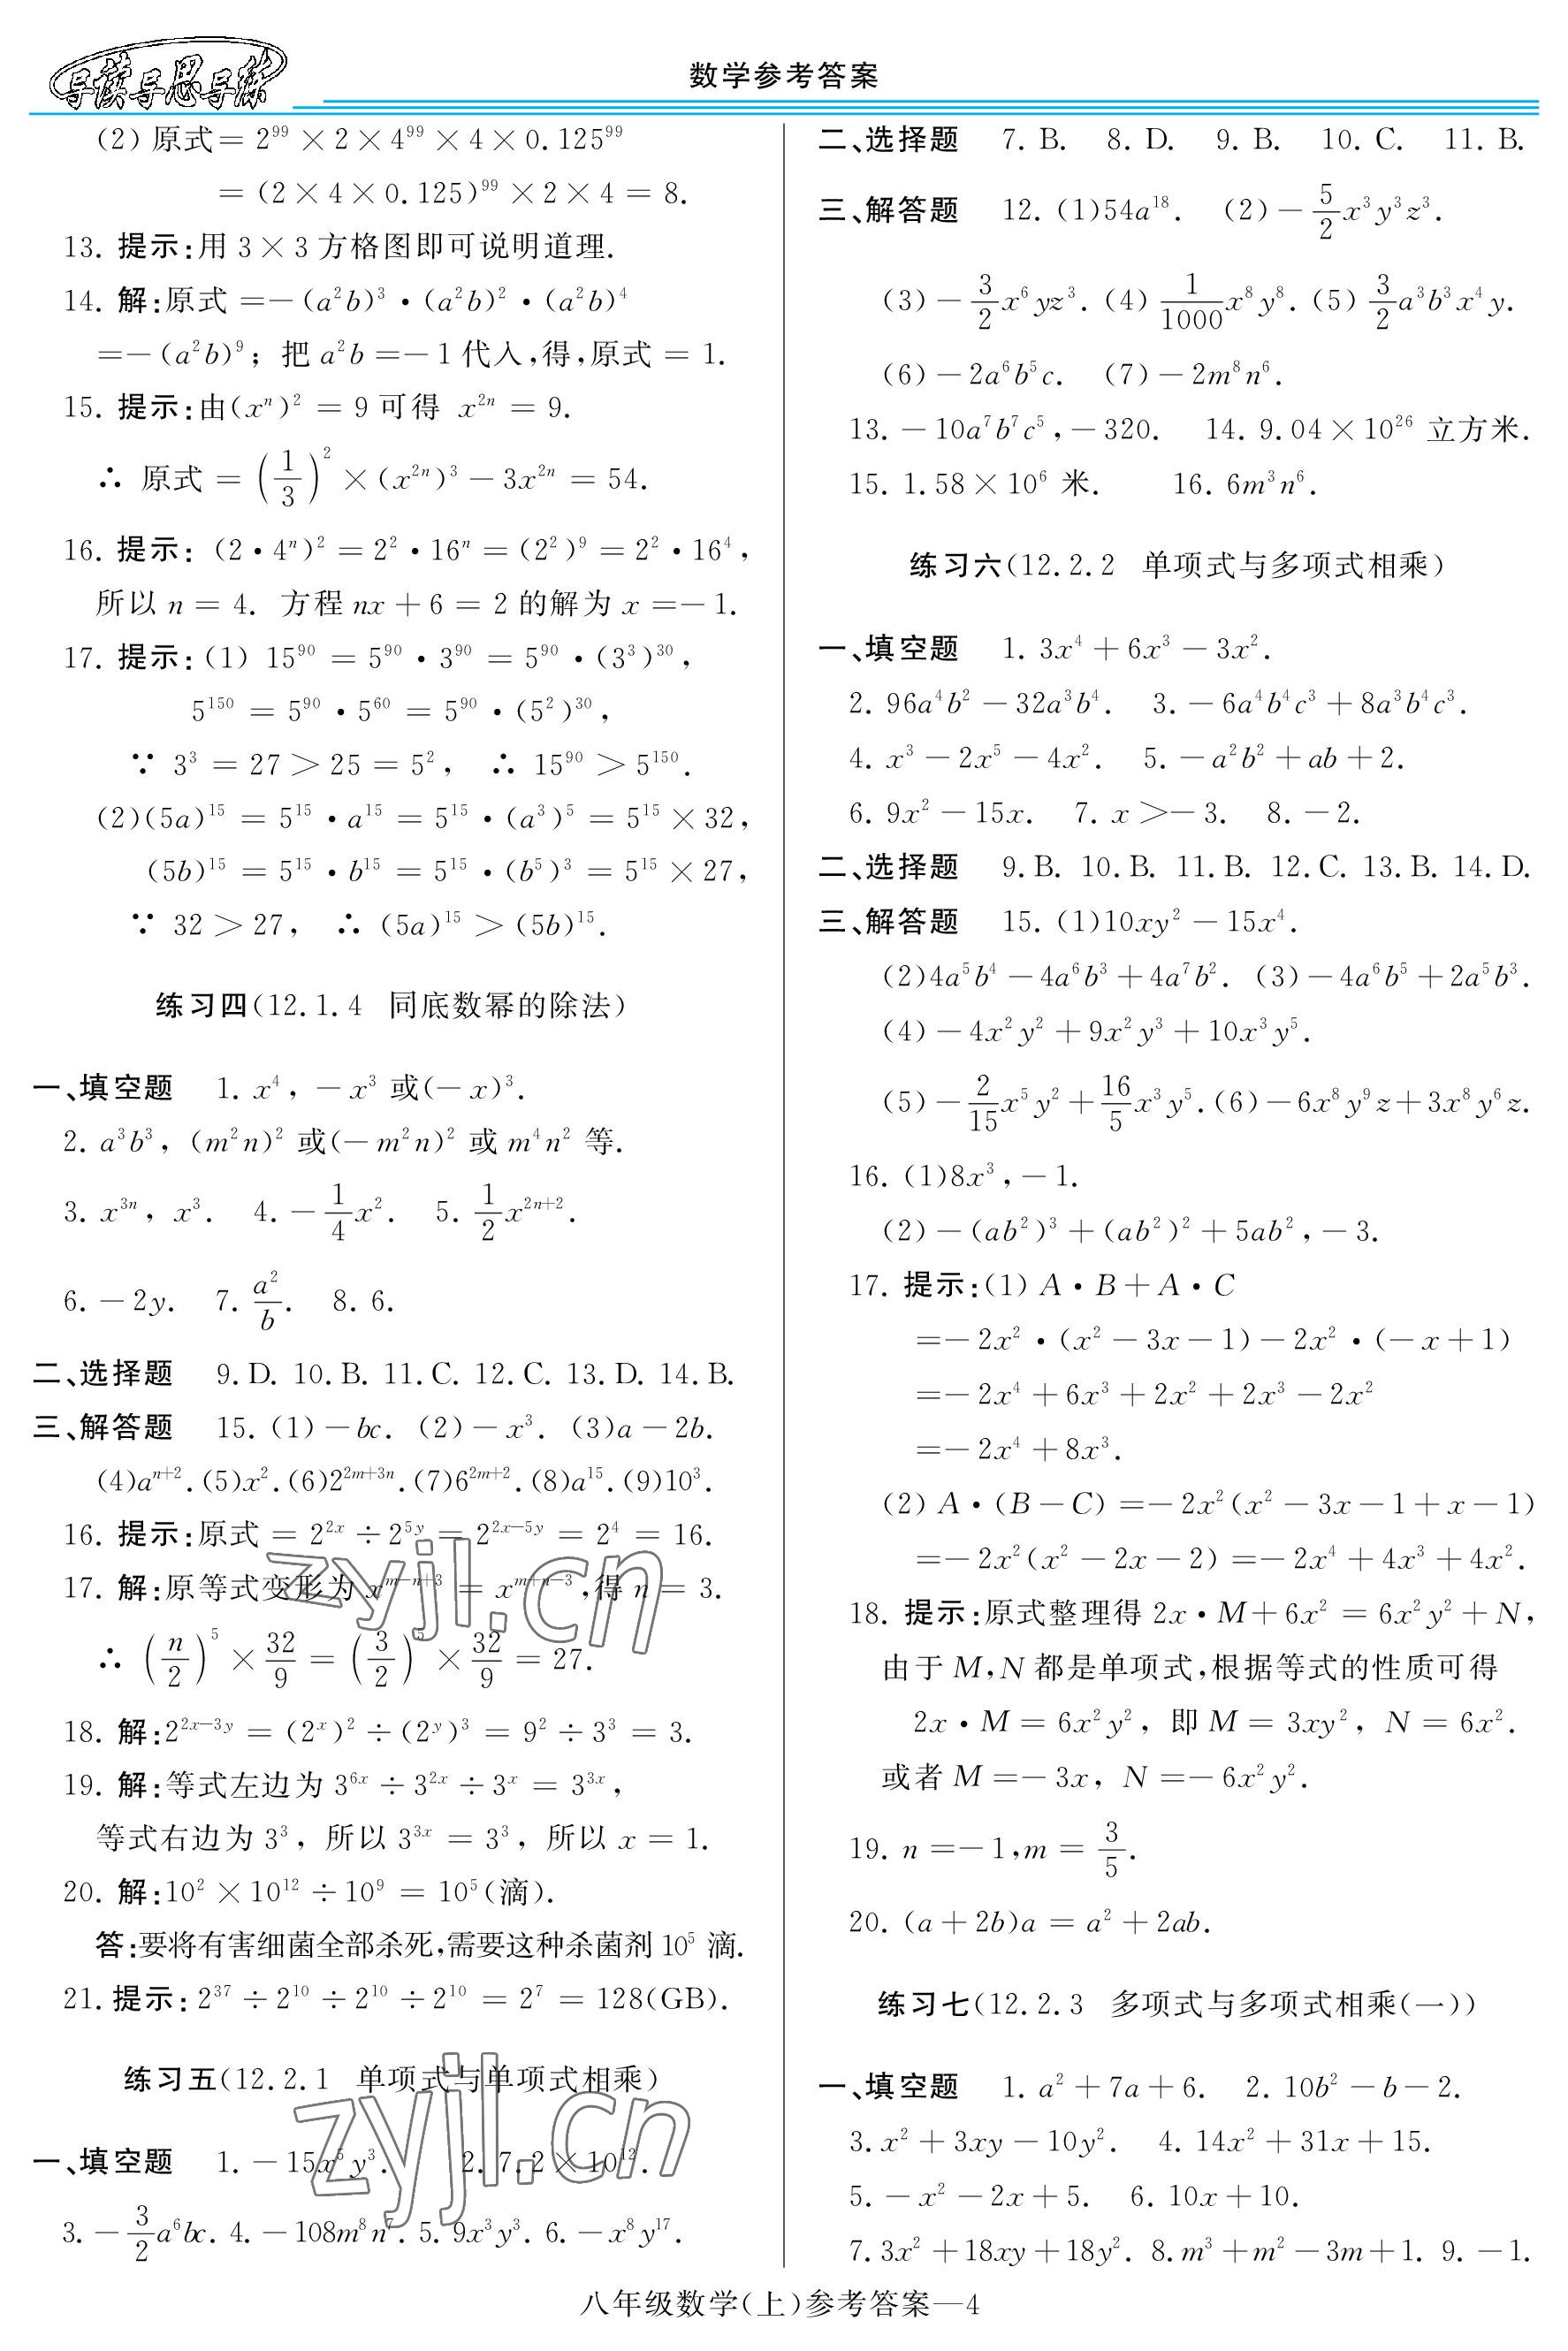 导读导思导练
数学参考答案
(2) 原式= 2⁹⁹ × 2 × 4⁹⁹ × 4 × 0.125⁹⁹
= (2 × 4 × 0.125)⁹⁹ × 2 × 4 = 8.
13. 提示:用 3 × 3 方格图即可说明道理.
14. 解:原式 =− (a²b)³ • (a²b)² • (a²b)⁴
=− (a²b)⁹ ; 把 a²b =− 1 代入,得,原式 = 1.
15. 提示:由(xⁿ)² = 9 可得 x²ⁿ = 9.
∴ 原式 = (1/3)² × (x²ⁿ)³ − 3x²ⁿ = 54.
16. 提示: (2 • 4ⁿ)² = 2² • 16ⁿ = (2²)⁹ = 2² • 16⁴ ,
所以 n = 4. 方程 nx + 6 = 2 的解为 x =− 1.
17. 提示: (1) 15⁹⁰ = 5⁹⁰ • 3⁹⁰ = 5⁹⁰ • (3³)³⁰ ,
5¹⁵⁰ = 5⁹⁰ • 5⁶⁰ = 5⁹⁰ • (5²)³⁰ ,
∵ 3³ = 27 > 25 = 5² , ∴ 15⁹⁰ > 5¹⁵⁰.
(2)(5a)¹⁵ = 5¹⁵ • a¹⁵ = 5¹⁵ • (a³)⁵ = 5¹⁵ × 32,
(5b)¹⁵ = 5¹⁵ • b¹⁵ = 5¹⁵ • (b⁵)³ = 5¹⁵ × 27,
∵ 32 > 27, ∴ (5a)¹⁵ > (5b)¹⁵.
练习四(12.1.4 同底数幂的除法)
一、填空题 1. x⁴ , − x³ 或(− x)³.
2. a³b³ , (m²n)² 或(− m²n)² 或 m⁴n² 等.
3. x³ⁿ , x³. 4. − 1/4 x². 5. 1/2 x²ⁿ⁺².
6. − 2y. 7. a²/b. 8. 6.
二、选择题 9. D. 10. B. 11. C. 12. C. 13. D. 14. B.
三、解答题 15. (1) − bc. (2) − x³. (3)a − 2b.
(4)aⁿ⁺². (5)x². (6)2²ᵐ⁺³ⁿ. (7)6²ᵐ⁺². (8)a¹⁵. (9)10³.
16. 提示:原式 = 2²ˣ ÷ 2⁵ʸ = 2²ˣ⁻⁵ʸ = 2⁴ = 16.
17. 解:原等式变形为 xᵐ⁻ⁿ⁺³ = xᵐ⁺ⁿ⁻³ ,得 n = 3.
∴ (n/2)⁵ × 32/9 = (3/2)⁵ × 32/9 = 27.
18. 解:2²ˣ⁻³ʸ = (2ˣ)² ÷ (2ʸ)³ = 9² ÷ 3³ = 3.
19. 解:等式左边为 3⁶ˣ ÷ 3²ˣ ÷ 3ˣ = 3³ˣ ,
等式右边为 3³ , 所以 3³ˣ = 3³ , 所以 x = 1.
20. 解:10² × 10¹² ÷ 10⁹ = 10⁵ (滴).
答:要将有害细菌全部杀死,需要这种杀菌剂 10⁵ 滴.
21. 提示: 2³⁷ ÷ 2¹⁰ ÷ 2¹⁰ ÷ 2¹⁰ = 2⁷ = 128(GB).
练习五(12.2.1 单项式与单项式相乘)
一、填空题 1. − 15x⁵y³. 2. 7.2 × 10¹².
3. − 3/2 a⁶bc. 4. − 108m⁸n⁷. 5. 9x³y³. 6. − x⁸y¹⁷.
二、选择题 7. B. 8. D. 9. B. 10. C. 11. B.
三、解答题 12. (1)54a¹⁸. (2) − 5/2 x³y³z³.
(3) − 3/2 x⁶yz³. (4) 1/1000 x⁸y⁸. (5) 3/2 a³b³x⁴y.
(6) − 2a⁶b⁵c. (7) − 2m⁸n⁶.
13. − 10a⁷b⁷c⁵ , − 320. 14. 9.04 × 10²⁶ 立方米.
15. 1.58 × 10⁶ 米. 16. 6m³n⁶.
练习六(12.2.2 单项式与多项式相乘)
一、填空题 1. 3x⁴ + 6x³ − 3x².
2. 96a⁴b² − 32a³b⁴. 3. − 6a⁴b⁴c³ + 8a³b⁴c³.
4. x³ − 2x⁵ − 4x². 5. − a²b² + ab + 2.
6. 9x² − 15x. 7. x >− 3. 8. − 2.
二、选择题 9. B. 10. B. 11. B. 12. C. 13. B. 14. D.
三、解答题 15. (1)10xy² − 15x⁴.
(2)4a⁵b⁴ − 4a⁶b³ + 4a⁷b². (3) − 4a⁶b⁵ + 2a⁵b³.
(4) − 4x²y² + 9x²y³ + 10x³y⁵.
(5) − 2/15 x⁵y² + 16/5 x³y⁵. (6) − 6x⁸y⁹z + 3x⁸y⁶z.
16. (1)8x³ , − 1.
(2) − (ab²)³ + (ab²)² + 5ab² , − 3.
17. 提示:(1) A • B + A • C
=− 2x² • (x² − 3x − 1) − 2x² • (− x + 1)
=− 2x⁴ + 6x³ + 2x² + 2x³ − 2x²
=− 2x⁴ + 8x³.
(2) A • (B − C) =− 2x²(x² − 3x − 1 + x − 1)
=− 2x²(x² − 2x − 2) =− 2x⁴ + 4x³ + 4x².
18. 提示:原式整理得 2x • M + 6x² = 6x²y² + N,
由于 M,N 都是单项式,根据等式的性质可得
2x • M = 6x²y² , 即 M = 3xy² , N = 6x².
或者 M =− 3x, N =− 6x²y².
19. n =− 1,m = 3/5.
20. (a + 2b)a = a² + 2ab.
练习七(12.2.3 多项式与多项式相乘(一))
一、填空题 1. a² + 7a + 6. 2. 10b² − b − 2.
3. x² + 3xy − 10y². 4. 14x² + 31x + 15.
5. − x² − 2x + 5. 6. 10x + 10.
7. 3x² + 18xy + 18y². 8. m³ + m² − 3m + 1. 9. − 1.
八年级数学(上)参考答案—4
zyjl.cn
zyjl.cn